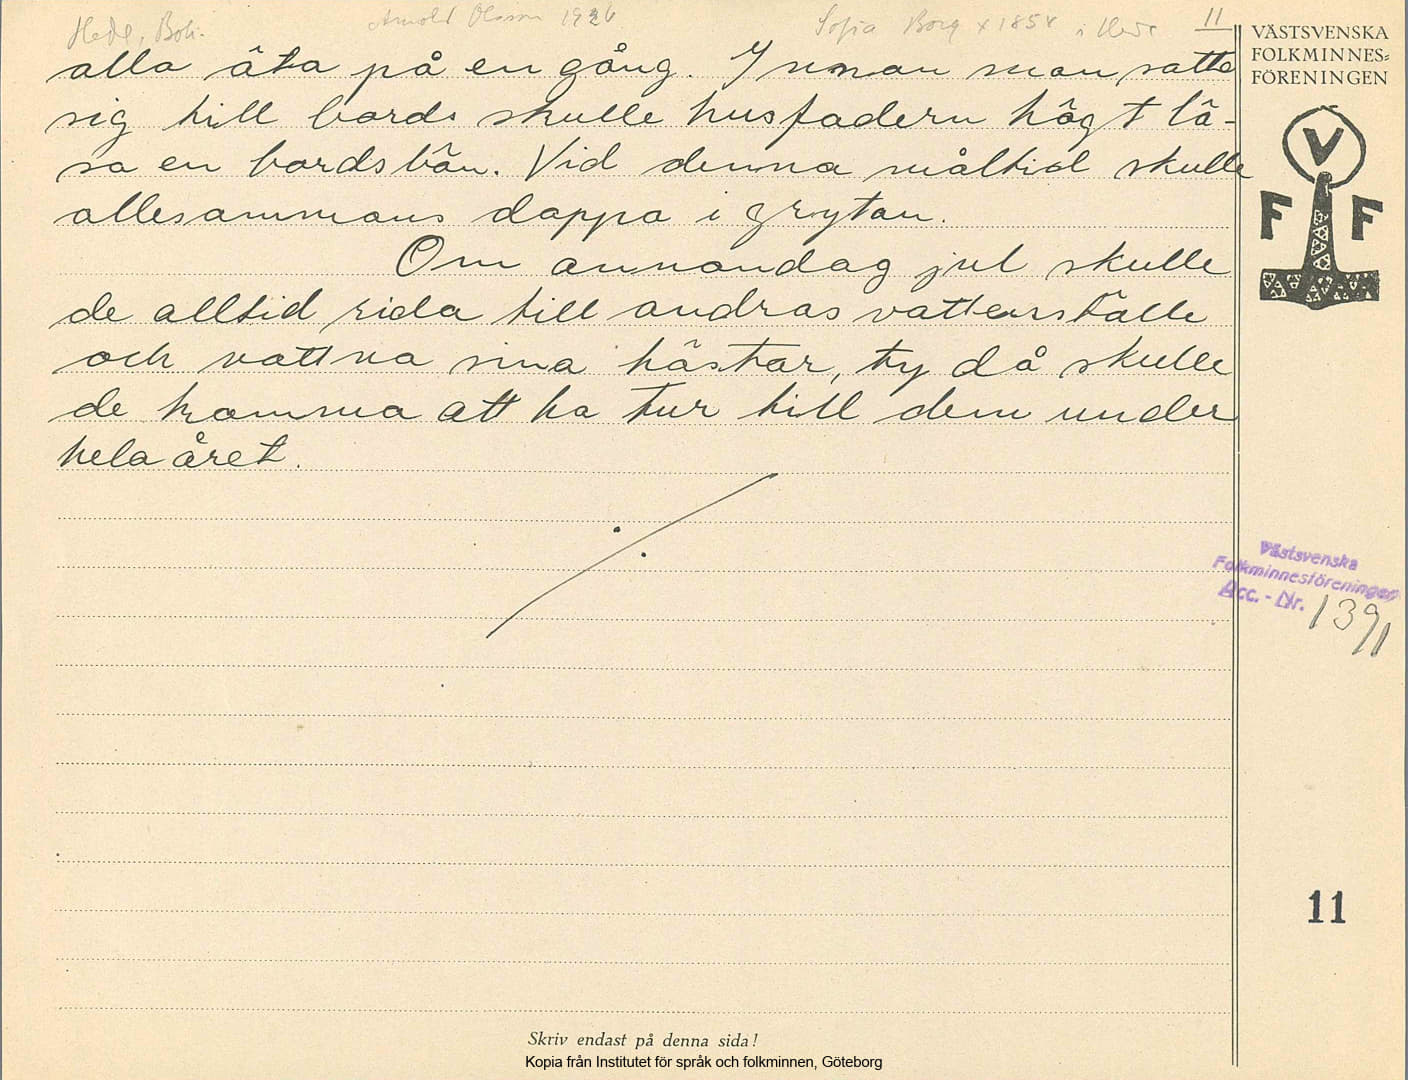 Hede, Boh. Arnold Olsson 1926 Sofia Borg x 1858 i Hede 11
alla äta på en gång. Innan man satte
sig till bords skulle husfadern högt lä-
sa en bordsbön. Vid denna måltid skulle
allesammans doppa i grytan.
Om annandag jul skulle
de alltid rida till andras vattenställe
och vattna sina hästar, ty då skulle
de komma att ha tur till dem under
hela året.
VÄSTSVENSKA
FOLKMINNES=
FÖRENINGEN
V
F F
Västsvenska
Folkminnesföreningen
Acc. - Nr. 1391
11
Skriv endast på denna sida!
Kopia från Institutet för språk och folkminnen, Göteborg